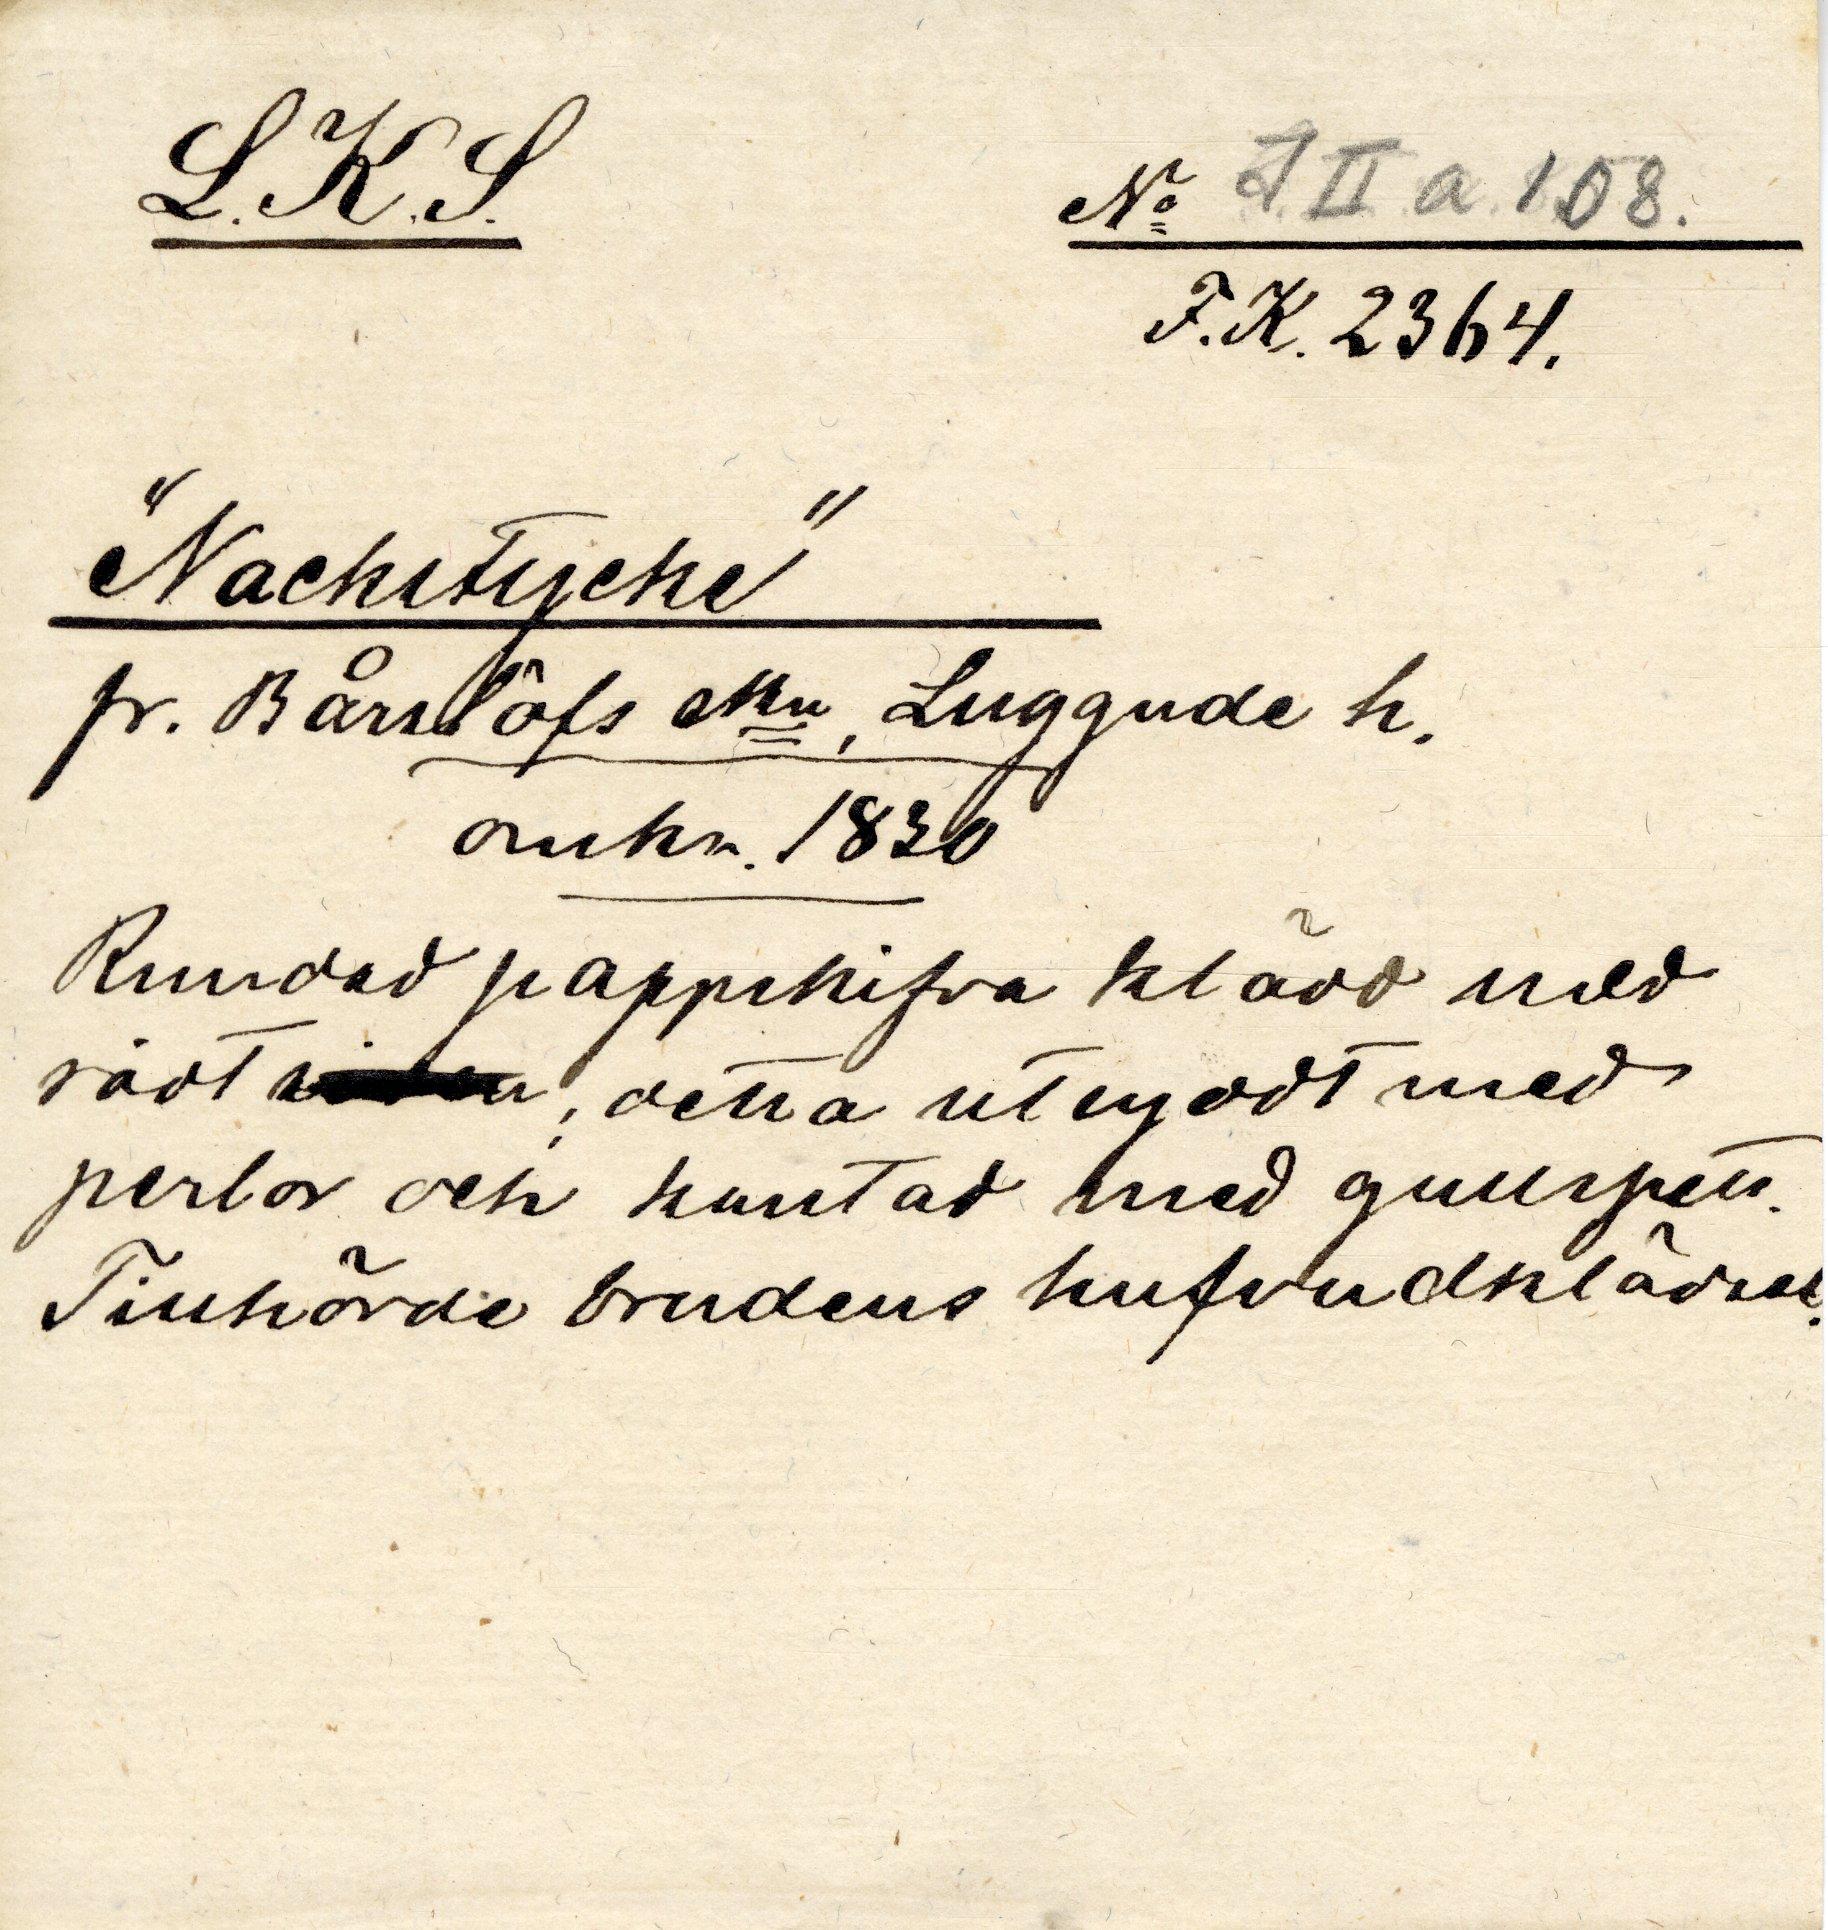 L.K.S.
No I II a. 108.
F.K. 2364.
"Nackstycke"
fr. Bårslöfs skn, Luggude h.
omkr. 1830
Rundad pappskifva klädd med
rödt , detta utsydt med
perlor och kantad med gullspets.
Tillhörde brudens hufvudklädsel.